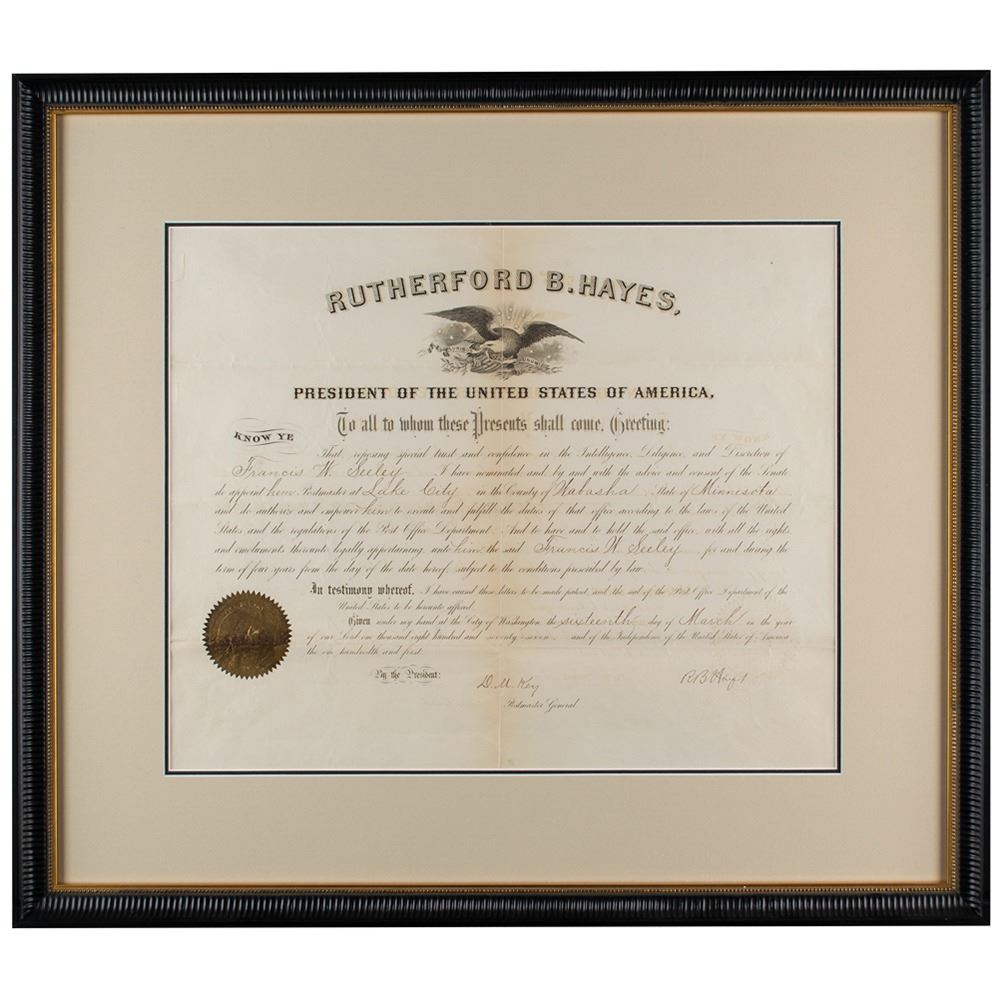 RUTHERFORD B. HAYES,
PRESIDENT OF THE UNITED STATES OF AMERICA,
To all to whom these Presents shall come, Greeting:
KNOW YE
That reposing special trust and confidence in the Intelligence, Diligence, and Discretion of
Francis W. Seeley I have nominated and by and with the advice and consent of the Senate
do appoint him Postmaster at Lake City, in the County of Wabasha State of Minnesota
and do authorize and empower him to execute and fulfill the duties of that office according to the laws of the United
States and the regulations of the Post Office Department. And to have and to hold the said office, with all the rights
and emoluments thereunto legally appertaining, unto him the said Francis W. Seeley for and during the
term of four years from the day of the date hereof, subject to the conditions prescribed by law.
In testimony whereof, I have caused these letters to be made patent, and the seal of the Post Office Department of the
United States to be hereunto affixed.
Given under my hand at the City of Washington the sixteenth day of March in the year
of our Lord one thousand eight hundred and seventy-seven and of the Independence of the United States of America
the one hundredth and first.
By the President:
D. M. Key
R B Hayes
Postmaster General